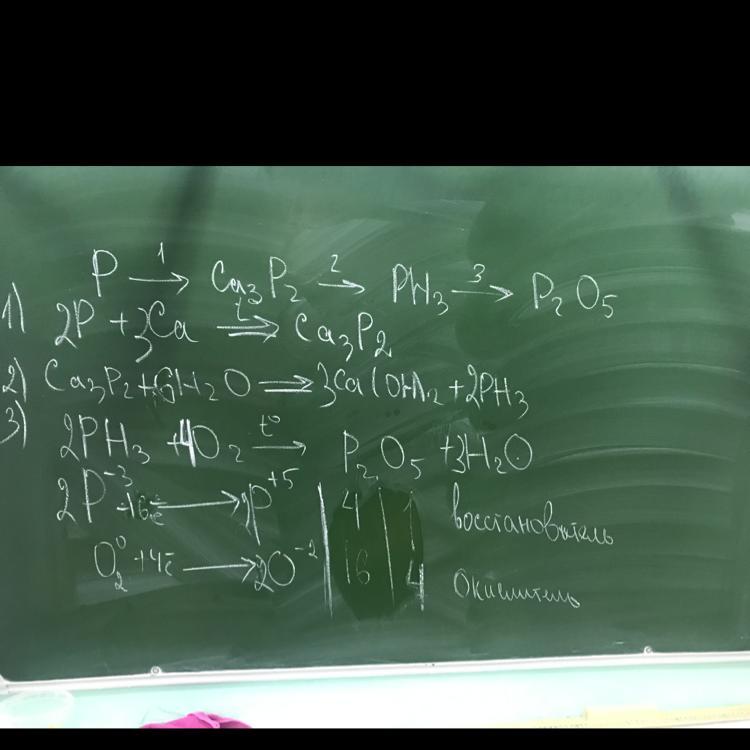 P 1→ Ca₃P₂ 2→ PH₃ 3→ P₂O₅
1) 2P + 3Ca t⇒ Ca₃P₂
2) Ca₃P₂ + 6H₂O ⇒ 3Ca(OH)₂ + 2PH₃
3) 2PH₃ + 4O₂ t°→ P₂O₅ + 3H₂O
2P⁻³ -16ē → 2P⁺⁵ | 4 | 1 восстановитель
O₂⁰ + 4ē → 2O⁻² | 16 | 4 Окислитель